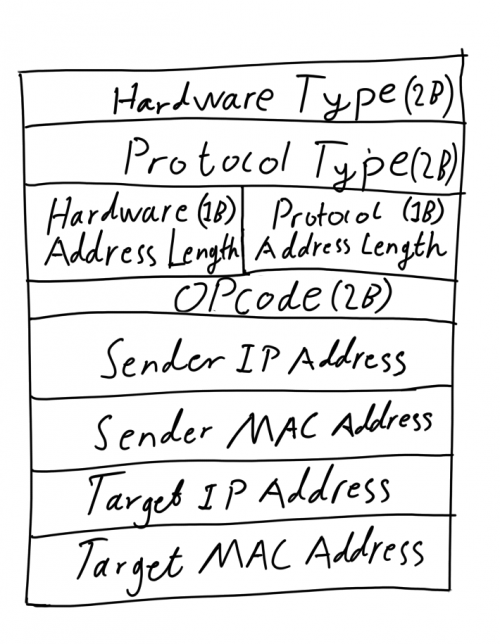 Hardware Type(2B)
Protocol Type(2B)
Hardware (1B)
Address Length
Protocol (1B)
Address Length
OPcode(2B)
Sender IP Address
Sender MAC Address
Target IP Address
Target MAC Address